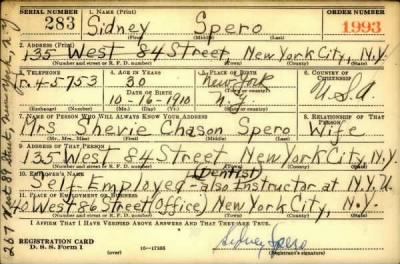 SERIAL NUMBER 1. NAME (Print) ORDER NUMBER
283 Sidney Spero 1993
(First) (Middle) (Last)
2. ADDRESS (Print)
135 West 84 Street, New York City, N.Y.
(Number and street or R. F. D. number) (Town) (County) (State)
3. TELEPHONE 4. AGE IN YEARS 5. PLACE OF BIRTH 6. COUNTRY OF CITIZENSHIP
Tr. 4-5753 30 New York U.S.A
DATE OF BIRTH (Town or county)
10-16-1910 N.Y.
(Exchange) (Number) (Mo.) (Day) (Yr.) (State or country)
7. NAME OF PERSON WHO WILL ALWAYS KNOW YOUR ADDRESS 8. RELATIONSHIP OF THAT PERSON
Mrs Shevie Chason Spero Wife
(Mr., Mrs., Miss) (First) (Middle) (Last)
9. ADDRESS OF THAT PERSON
135 West 84 Street, New York City, N.Y.
(Number and street or R. F. D. number) (Town) (County) (State)
10. EMPLOYER'S NAME (Dentist)
Self-Employed-also Instructor at N.Y.U.
11. PLACE OF EMPLOYMENT OR BUSINESS
40 West 86 Street (Office) New York City, N.Y.
(Number and street or R. F. D. number) (Town) (County) (State)
I AFFIRM THAT I HAVE VERIFIED ABOVE ANSWERS AND THAT THEY ARE TRUE.
REGISTRATION CARD
D. S. S. FORM 1 (over) 16-17105 Sidney Spero
(Registrant's signature)
267 West 89 Street, New York, N.Y